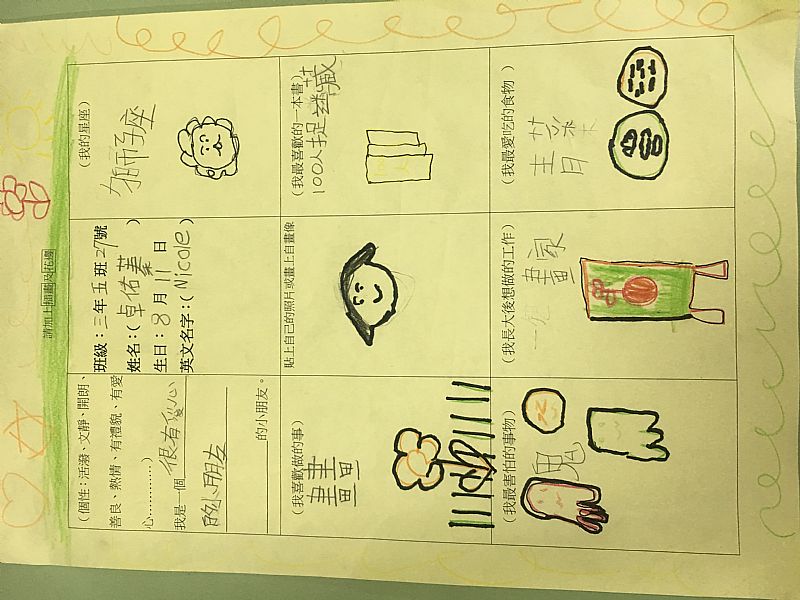 請加上插圖及花邊
（個性：活潑、文靜、開朗、
善良、熱情、有禮貌、有愛
心…………）
我是一個很有愛心
的小朋友
的小朋友。
班級：三年五班27號
姓名：（卓佑蓁）
生日：8月11日
英文名字：（Nicole）
（我的星座）
獅子座
（我喜歡做的事）
畫畫
貼上自己的照片或畫上自畫像
（我最喜歡的一本書）
100人捉迷藏
（我最害怕的事物）
鬼
（我長大後想做的工作）
畫家
（我最愛吃的食物）
青菜